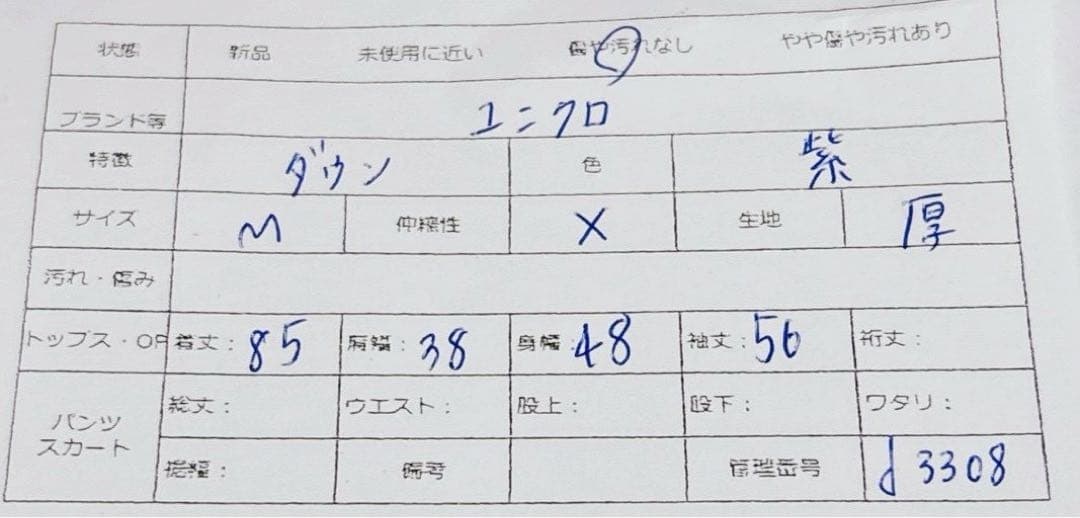 状態 新品 未使用に近い 傷や汚れなし やや傷や汚れあり
ブランド等 ユニクロ
特徴 ダウン 色 紫
サイズ M 伸縮性 X 生地 厚
汚れ・傷み
トップス・OP 着丈: 85 肩幅: 38 身幅: 48 袖丈: 56 裄丈:
パンツ
スカート
総丈: ウエスト: 股上: 股下: ワタリ:
裾幅: 備考 管理番号 d3308